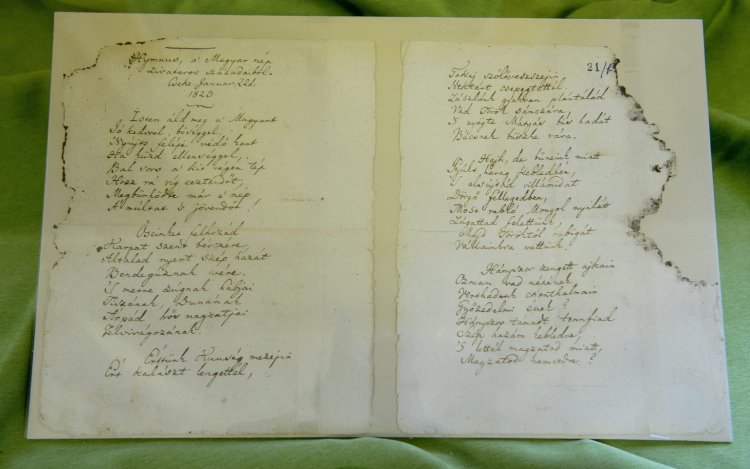 Hymnus, a' Magyar nép
zivataros századaiból.
Cseke Januar. 22d.
1823
Isten áld meg a Magyart
Jó kedvvel, bőséggel,
Nyújts feléje védő kart
Ha küzd ellenséggel,
Bal sors a' kit régen tép
Hozz rá víg esztendőt,
Megbűnhödte már e' nép
A' múltat 's jövendőt!
Őseinket felhozád
Kárpát szent bérczére,
Általad nyert szép hazát
Bendegúznak vére.
'S merre zúgnak habjai
Tiszának, Dunának
Árpád hős magzatjai
Felvirágozának.
Értünk Kunság mezejin
Ért kalászt lengettél,
21/
Tokaj szőlővesszejin
Nektárt csepegtettél.
Zászlónk gyakran plántálád
Vad Török sánczára,
'S nyögte Mátyás bús hadát
Bécsnek büszke vára.
Hajh, de bűneink miatt
Gyúlt harag kebledben,
'S elsújtád villámidat
Dörgő fellegedben,
Most rabló Mongol nyilát
Zúgattad felettünk,
Majd Töröktől rabigát
Vállainkra vettünk.
Hányszor zengett ajkain
Ozman vad népének
Vert hadunk csonthalmain
Győzedelmi ének?
Hányszor támadt tennfiad
Szép hazám kebledre,
'S lettél magzatod miatt,
Magzatod hamvvedre?